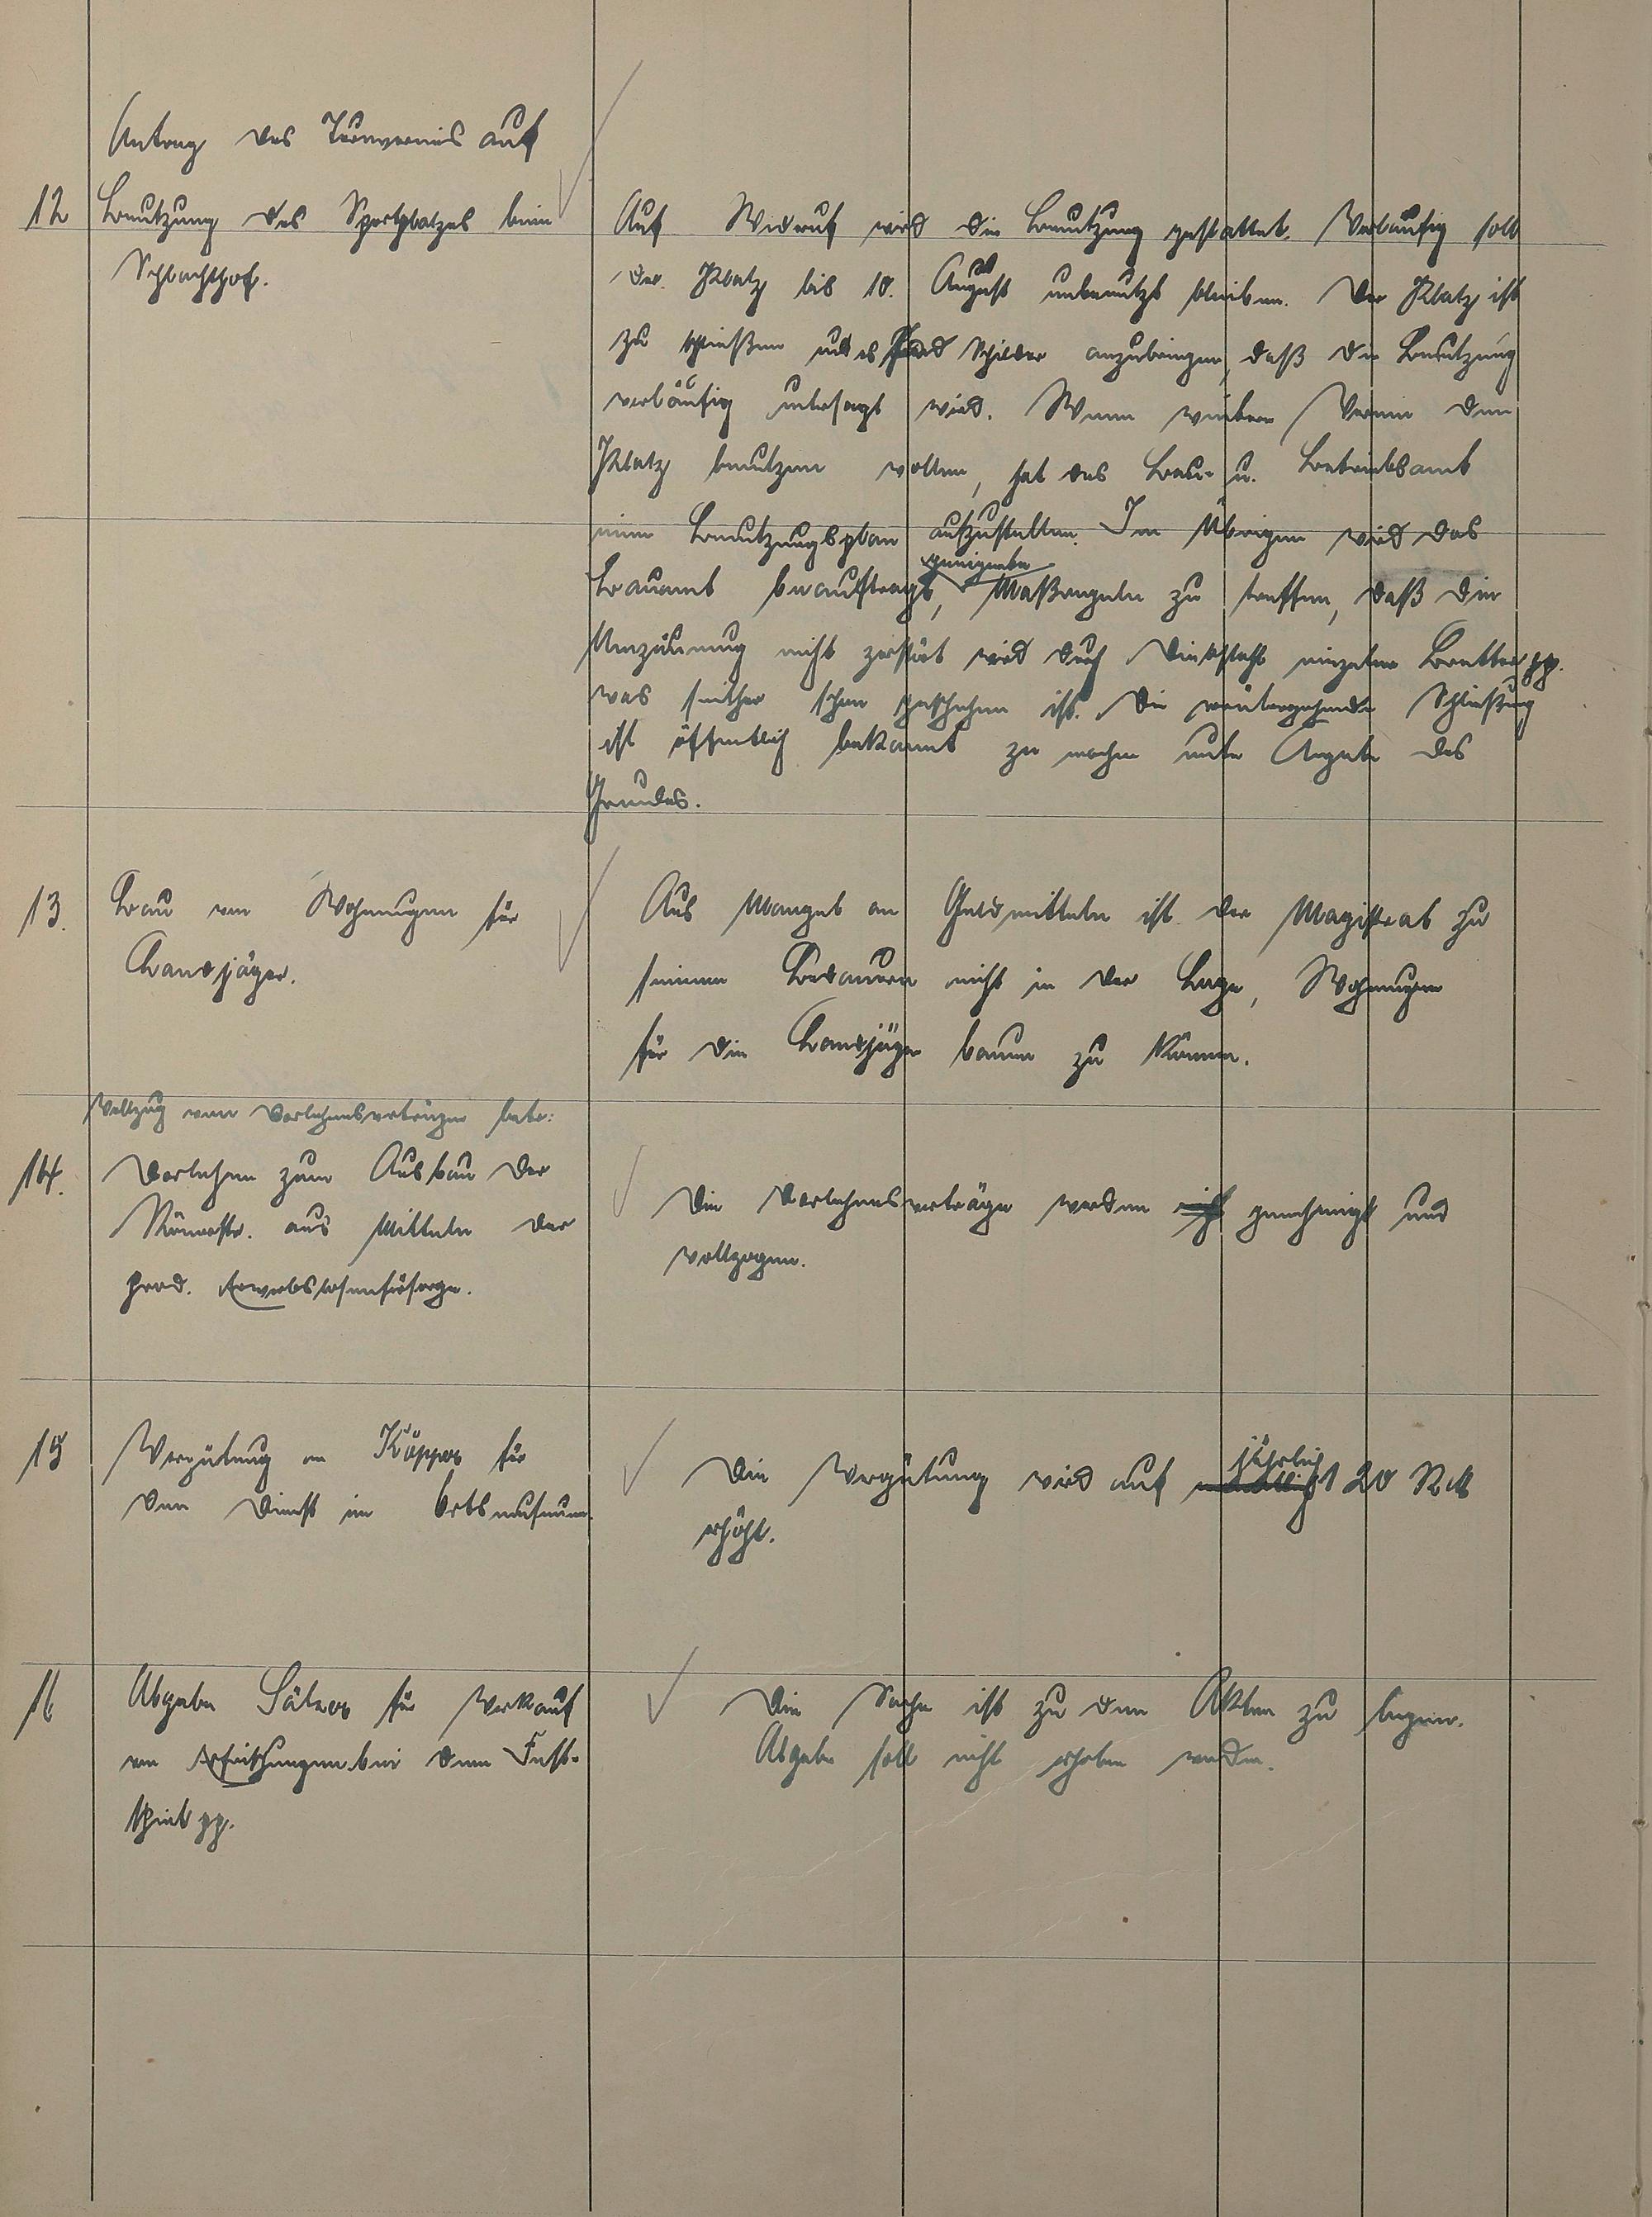 Antrag des Turnvereins auf
12 Benutzung des Sportplatzes beim
Schlachthof.
Auf Widerruf wird die Benutzung gestattet. Vorläufig soll
der Platz bis 10. August unbenutzt bleiben. Der Platz ist
zu schließen und es sind Schilder anzubringen, daß die Benutzung
vorläufig untersagt wird. Wenn weitere Vereine den
Platz benutzen wollen, hat das Bau- u. Betriebsamt
einen Benutzungsplan aufzustellen. Im Übrigen wird das
Bauamt beauftragt, geeignete Maßregeln zu treffen, daß die
Umzäunung nicht zerstört wird durch Diebstahl einzelner Bretter pp.
was seither schon geschehen ist. Die vorübergehende Schließung
ist öffentlich bekannt zu machen unter Angabe des
Grundes.
13. Bau von Wohnungen für
Landjäger.
Aus Mangel an Geldmitteln ist der Magistrat zu
seinem Bedauern nicht in der Lage, Wohnungen
für die Landjäger bauen zu können.
Vollzug von Darlehensverträgen betr:
14. Darlehen zum Ausbau der
Römerstr. aus Mitteln der
prod. Erwerbslosenfürsorge.
Die Darlehensverträge werden genehmigt und
vollzogen.
15 Vergütung an Küpper für
den Dienst im Ortsmuseum.
Die Vergütung wird auf jährlich 120 RM
erhöht.
16 Abgabe für Verkauf
von Erfrischungen bei dem Fest-
spiel pp.
Die Sache ist zu den Akten zu legen.
Abgabe soll nicht erhoben werden.